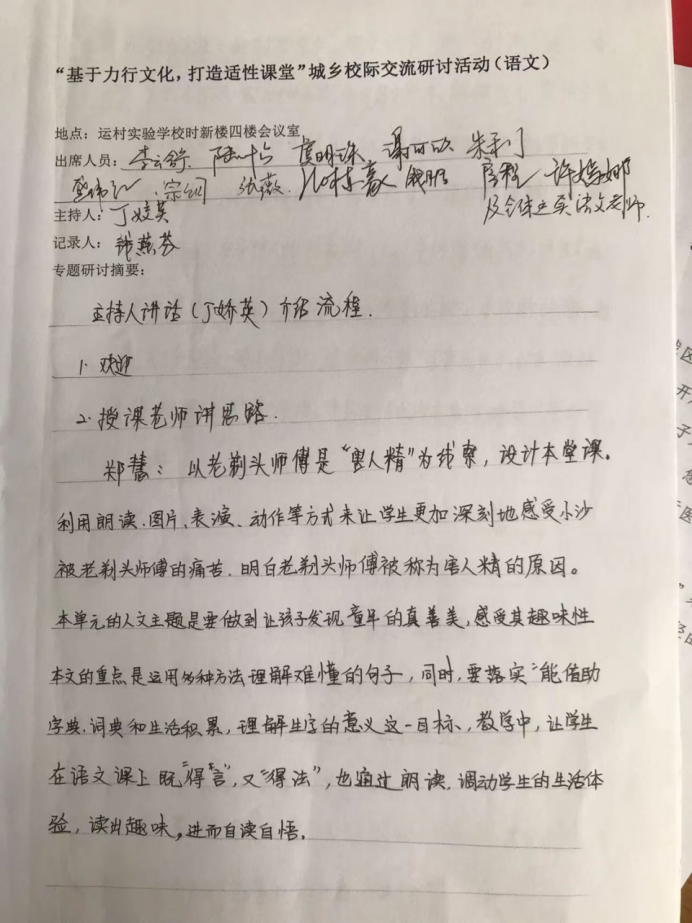 “基于力行文化，打造适性课堂”城乡校际交流研讨活动（语文）
地点：运村实验学校时新楼四楼会议室
出席人员：李云舒 虞明珠 谢可以
宗钢 张薇 钱鹏 许婷娜
及全体 语文老师.
主持人：丁姣英
记录人：钱燕芬
专题研讨摘要：
主持人讲话（丁娇英）介绍流程.
1. 欢迎
2. 授课老师讲思路.
郑慧：以老剃头师傅是“害人精”为线索，设计本堂课.
利用朗读、图片、表演、动作等方式来让学生更加深刻地感受小沙
被老剃头师傅的痛苦.明白老剃头师傅被称为害人精的原因。
本单元的人文主题是要做到让孩子发现童年的真善美，感受其趣味性
本文的重点是运用多种方法理解难懂的句子，同时，要落实“能借助
字典、词典和生活积累，理解生字的意义这一目标，教学中，让学生
在语文课上既“得言”，又“得法”，也通过朗读，调动学生的生活体
验，读出趣味，进而自读自悟.